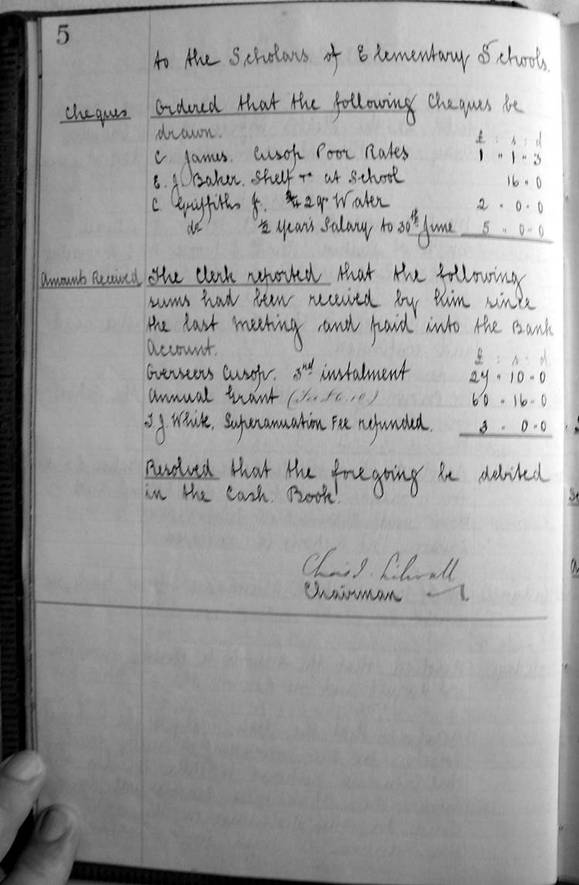 5
to the Scholars of Elementary Schools.
Cheques Ordered that the following Cheques be
drawn. £ : s : d
C. James. Cusop Poor Rates 1 - 1 - 3
E. J. Baker. Shelf at School 16 - 0
C Griffiths Water 2 - 0 - 0
do ½ Years Salary to 30th June 5 - 0 - 0
Amounts Received The Clerk reported that the following
sums had been received by him since
the last meeting and paid into the Bank
Account. £ : s : d
Overseers Cusop. 3rd instalment 10 - 0
Annual Grant 60 - 16 - 0
T. J. White. Superanuation Fee refunded. 3 - 0 - 0
Resolved that the foregoing be debited
in the Cash Book.
Chairman